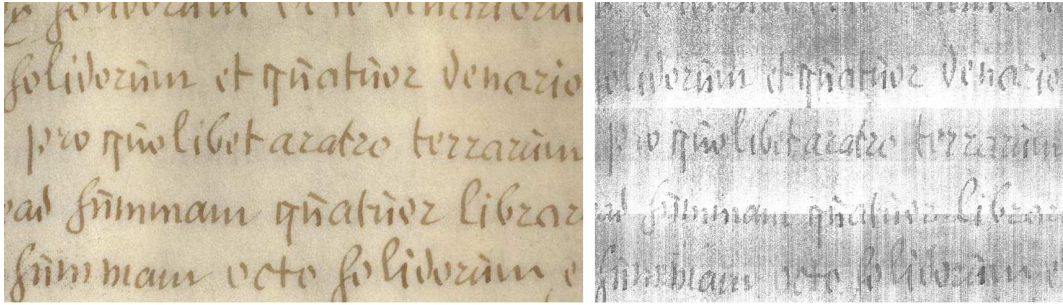 solidorum et quatuor denario
pro quolibet aratro terrarum
ad summam quatuor librar
summam octo solidorum e
olidorum et quatuor denario
pro quolibet aratro terrarum
ad summam quatuor libra
summam octo solidorum